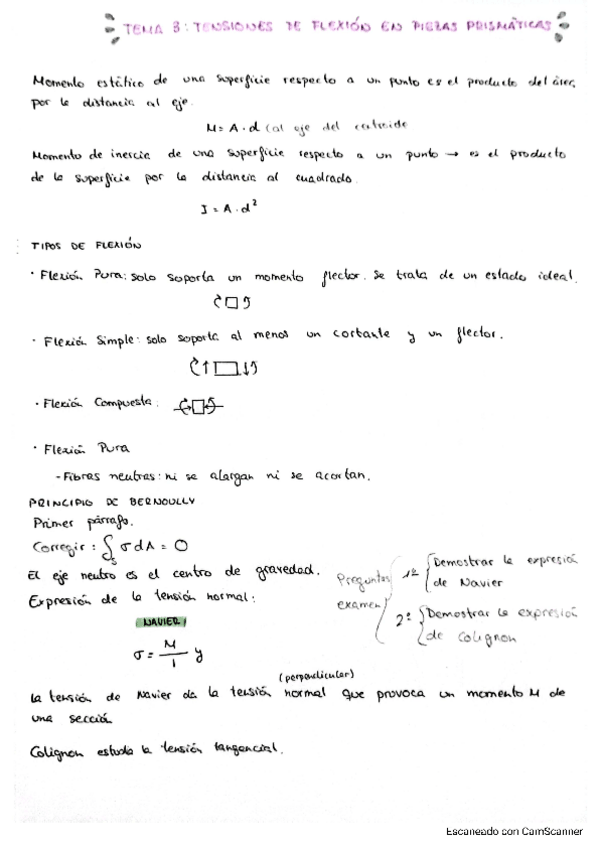 TEMA 3: TENSIONES DE FLEXIÓN EN PIEZAS PRISMÁTICAS
Momento estático de una superficie respecto a un punto es el producto del área,
por la distancia al eje.
M = A · d (al eje del centroide
Momento de inercia de una superficie respecto a un punto → es el producto
de la superficie por la distancia al cuadrado.
I = A · d²
TIPOS DE FLEXIÓN
· Flexión Pura: solo soporta un momento flector. Se trata de un estado ideal.
· Flexión Simple: solo soporta al menos un cortante y un flector.
· Flexión Compuesta:
· Flexión Pura
- Fibras neutras: ni se alargan ni se acortan.
PRINCIPIO DE BERNOULLY
Primer párrafo.
Corregir: ∫s σ dA = 0
El eje neutro es el centro de gravedad.
Expresión de la tensión normal:
Preguntas examen
1º Demostrar la expresión
de Navier
2º Demostrar la expresión
de Colignon
NAVIER
σ = M/I y
(perpendicular)
La tensión de Navier da la tensión normal que provoca un momento M de
una sección
Colignon estudia la tensión tangencial.
Escaneado con CamScanner